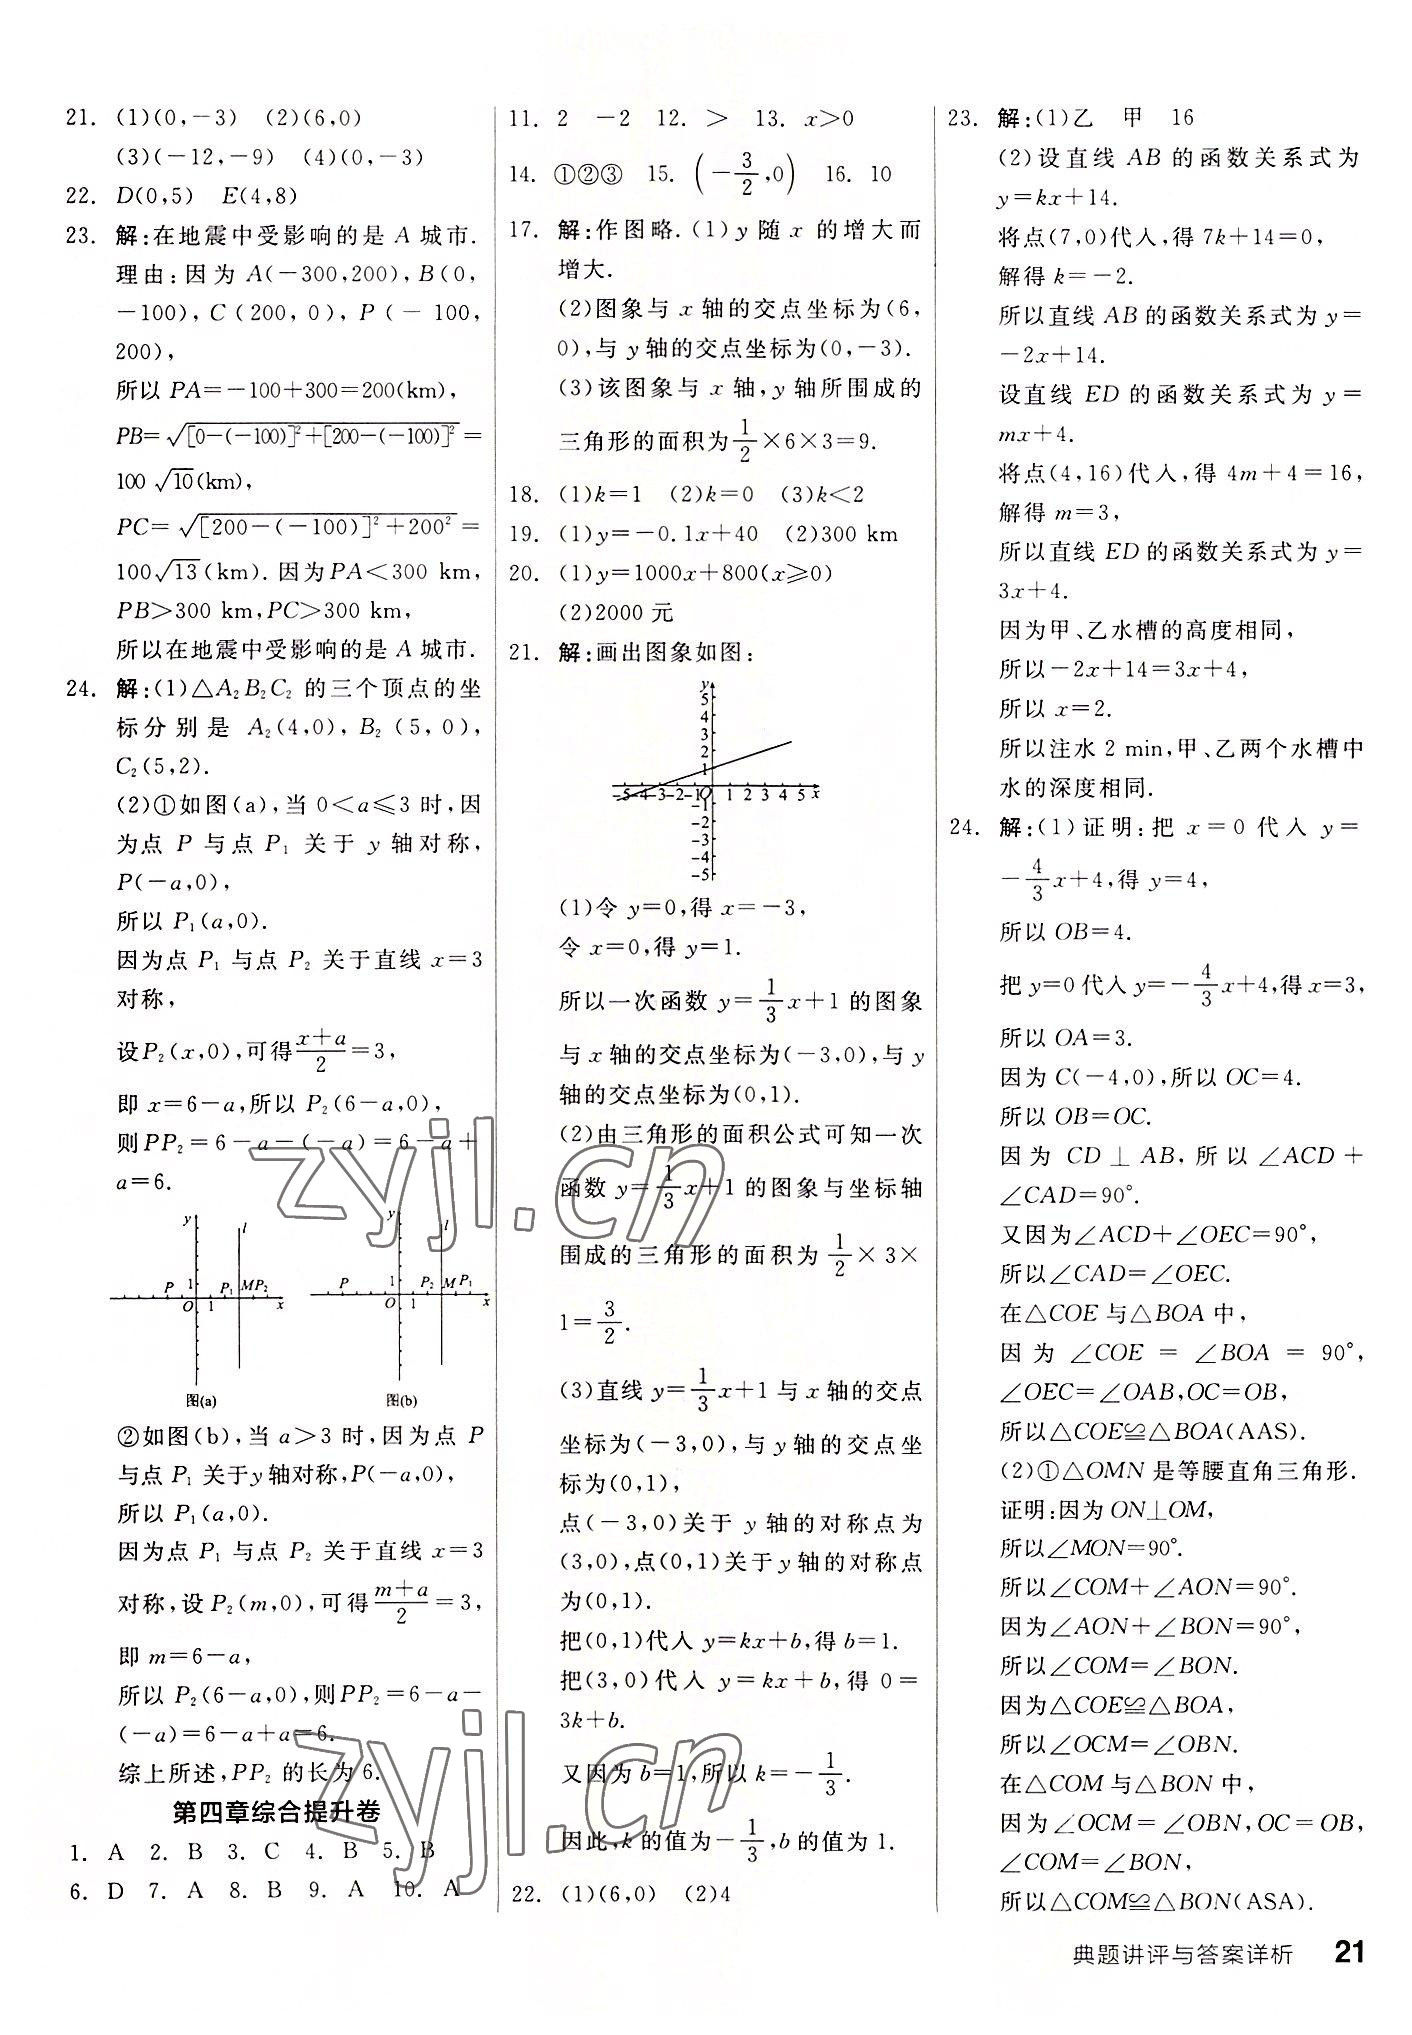 21. (1)(0,−3) (2)(6,0)
(3)(−12,−9) (4)(0,−3)
22. D(0,5) E(4,8)
23. 解:在地震中受影响的是 A 城市.
理由:因为 A(−300,200),B(0,
−100),C(200,0),P(−100,
200),
所以 PA=−100+300=200(km),
PB=√([0−(−100)]²+[200−(−100)]²)=
100√10(km),
PC=√([200−(−100)]²+200²)=
100√13(km). 因为PA<300 km,
PB>300 km,PC>300 km,
所以在地震中受影响的是 A 城市.
24. 解:(1)△A₂B₂C₂ 的三个顶点的坐
标分别是 A₂(4,0),B₂(5,0),
C₂(5,2).
(2)①如图(a),当 0<a≤3 时,因
为点 P 与点 P₁ 关于 y 轴对称,
P(−a,0),
所以 P₁(a,0).
因为点 P₁ 与点 P₂ 关于直线 x=3
对称,
设P₂(x,0),可得(x+a)/2=3,
即 x=6−a,所以 P₂(6−a,0),
则PP₂=6−a−(−a)=6−a+
a=6.
y l P 1 P₁ M P₂ O 1 x
图(a)
y l P 1 P₂ M P₁ O 1 x
图(b)
②如图(b),当 a>3 时,因为点 P
与点 P₁ 关于y轴对称,P(−a,0),
所以 P₁(a,0).
因为点 P₁ 与点 P₂ 关于直线 x=3
对称,设 P₂(m,0),可得(m+a)/2=3,
即 m=6−a,
所以 P₂(6−a,0),则PP₂=6−a−
(−a)=6−a+a=6.
综上所述,PP₂ 的长为 6.
第四章综合提升卷
1. A 2. B 3. C 4. B 5. B
6. D 7. A 8. B 9. A 10. A
11. 2 −2 12. > 13. x>0
14. ①②③ 15. (−3/2,0) 16. 10
17. 解:作图略.(1)y 随 x 的增大而
增大.
(2)图象与 x 轴的交点坐标为(6,
0),与 y轴的交点坐标为(0,−3).
(3)该图象与 x 轴,y 轴所围成的
三角形的面积为1/2×6×3=9.
18. (1)k=1 (2)k=0 (3)k<2
19. (1)y=−0.1x+40 (2)300 km
20. (1)y=1000x+800(x≥0)
(2)2000 元
21. 解:画出图象如图:
y
5
4
3
2
1
−5−4−3−2−1O 1 2 3 4 5 x
−1
−2
−3
−4
−5
(1)令 y=0,得 x=−3,
令 x=0,得 y=1.
所以一次函数 y=1/3x+1 的图象
与 x 轴的交点坐标为(−3,0),与 y
轴的交点坐标为(0,1).
(2)由三角形的面积公式可知一次
函数 y=1/3x+1 的图象与坐标轴
围成的三角形的面积为 1/2×3×
1=3/2.
(3)直线 y=1/3x+1 与 x 轴的交点
坐标为(−3,0),与 y 轴的交点坐
标为(0,1),
点(−3,0)关于 y 轴的对称点为
(3,0),点(0,1)关于 y轴的对称点
为(0,1).
把(0,1)代入 y=kx+b,得 b=1.
把(3,0)代入 y=kx+b,得 0=
3k+b.
又因为 b=1,所以 k=−1/3.
因此,k 的值为−1/3,b 的值为 1.
22. (1)(6,0) (2)4
23. 解:(1)乙 甲 16
(2)设直线 AB 的函数关系式为
y=kx+14.
将点(7,0)代入,得 7k+14=0,
解得 k=−2.
所以直线 AB 的函数关系式为 y=
−2x+14.
设直线 ED 的函数关系式为 y=
mx+4.
将点(4,16)代入,得 4m+4=16,
解得 m=3,
所以直线 ED 的函数关系式为 y=
3x+4.
因为甲、乙水槽的高度相同,
所以−2x+14=3x+4,
所以 x=2.
所以注水 2 min,甲、乙两个水槽中
水的深度相同.
24. 解:(1)证明:把 x=0 代入 y=
−4/3x+4,得 y=4,
所以 OB=4.
把 y=0代入 y=−4/3x+4,得 x=3,
所以 OA=3.
因为 C(−4,0),所以 OC=4.
所以 OB=OC.
因为 CD⊥AB,所以∠ACD+
∠CAD=90°.
又因为∠ACD+∠OEC=90°,
所以∠CAD=∠OEC.
在△COE 与△BOA 中,
因为 ∠COE = ∠BOA = 90°,
∠OEC=∠OAB,OC=OB,
所以△COE≌△BOA(AAS).
(2)①△OMN 是等腰直角三角形.
证明:因为 ON⊥OM,
所以∠MON=90°.
所以∠COM+∠AON=90°.
因为∠AON+∠BON=90°,
所以∠COM=∠BON.
因为△COE≌△BOA,
所以∠OCM=∠OBN.
在△COM 与△BON 中,
因为∠OCM=∠OBN,OC=OB,
∠COM=∠BON,
所以△COM≌△BON(ASA).
典题讲评与答案详析 21
zyjl.cn
zyjl.cn